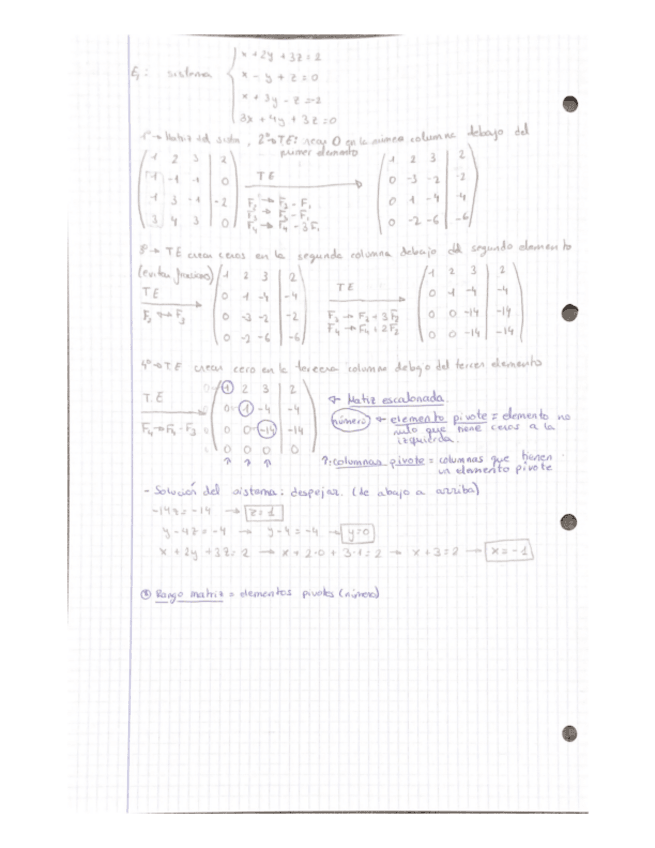 Ej: sistema
x + 2y + 3z = 2
x - y + z = 0
x + 3y - z = -2
3x + 4y + 3z = 0
1º → Matriz del sistm, 2º → TE: crear 0 en la primera columna debajo del
primer elemento
1 2 3 | 2
1 -1 1 | 0
1 3 -1 | -2
3 4 3 | 0
TE
F2 → F2 - F1
F3 → F3 - F1
F4 → F4 - 3F1
1 2 3 | 2
0 -3 -2 | -2
0 1 -4 | -4
0 -2 -6 | -6
3º → TE crear ceros en la segunda columna debajo del segundo elemento
(evitar fracciones)
TE
F2 ↔ F3
1 2 3 | 2
0 1 -4 | -4
0 -3 -2 | -2
0 -2 -6 | -6
TE
F3 → F3 + 3F2
F4 → F4 + 2F2
1 2 3 | 2
0 1 -4 | -4
0 0 -14 | -14
0 0 -14 | -14
4º → TE crear cero en la tercera columna debajo del tercer elemento
TE
F4 → F4 - F3
1 2 3 | 2
0 1 -4 | -4
0 0 -14 | -14
0 0 0 | 0
↑ ↑ ↑
→ Matriz escalonada
número → elemento pivote = elemento no
nulo que tiene ceros a la
izquierda.
↑: columnas pivote = columnas que tienen
un elemento pivote
- Solución del sistema: despejar. (de abajo a arriba)
-14z = -14 → z = 1
y - 4z = -4 → y - 4 = -4 → y = 0
x + 2y + 3z = 2 → x + 2·0 + 3·1 = 2 → x + 3 = 2 → x = -1
Rango matriz = elementos pivotes (número)